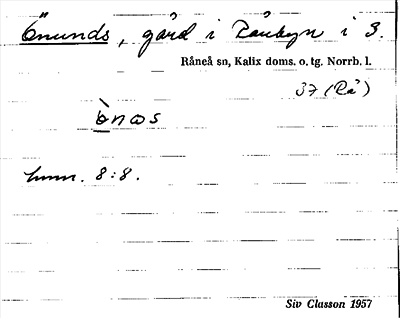 Önunds, gård i Rånbyn i 3.
Råneå sn, Kalix doms. o. tg. Norrb. l.
37 (Rå)
ònəs
hmn. 8:8.
Siv Classon 1957